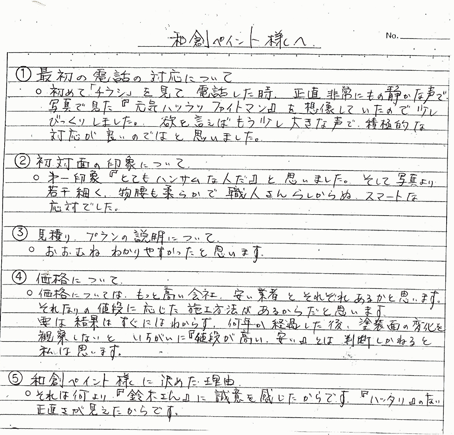 和創ペイント様へ
No.
① 最初の電話の対応について
○ 初めて「チラシ」を見て電話した時、正直非常にもの静かな声で
写真で見た『元気ハツラツファイトマン』を想像していたので少し
びっくりしました。欲を言えばもう少し大きな声で、積極的な
対応が良いのではと思いました。
② 初対面の印象について
○ 第一印象『とてもハンサムな人だ』と思いました。そして写真より
若干細く、物腰も柔らかで職人さんらしからぬ、スマートな
応対でした。
③ 見積り、プランの説明について
○ おおむねわかりやすかったと思います。
④ 価格について
○ 価格については、もっと高い会社、安い業者とそれぞれあるかと思います。
それなりの値段に応じた施工方法があるからだと思います。
要は結果はすぐにはわからず、何年か経過した後、塗装面の劣化を
観察しないといちがいに『値段が高い、安い』とは判断しかねると
私は思います。
⑤ 和創ペイント様に決めた理由
○ それは何より『鈴木さん』に誠意を感じたからです。『ハッタリ』のない
正直さが見えたからです。